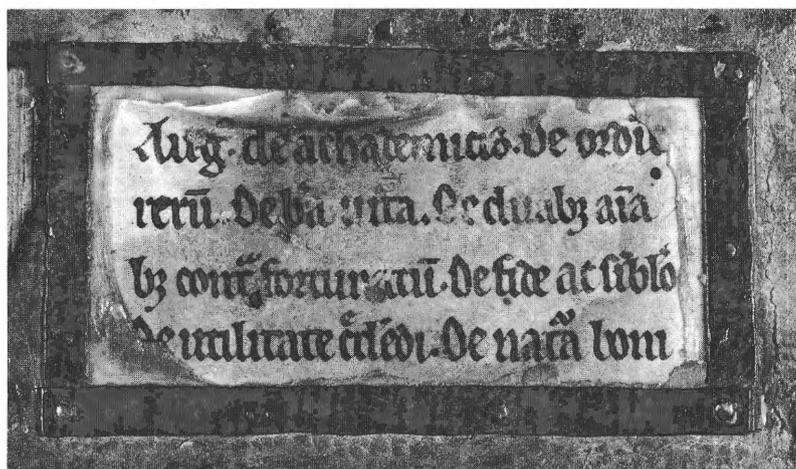 Aug. de achademicis. De ordīe
rerū. De bā uita. De duabꝫ aīa
bꝫ cont̄ᵃ fortunatū. De fide ac sīblō
De utilitate c̄dēdi. De nat̄ᵃa boni